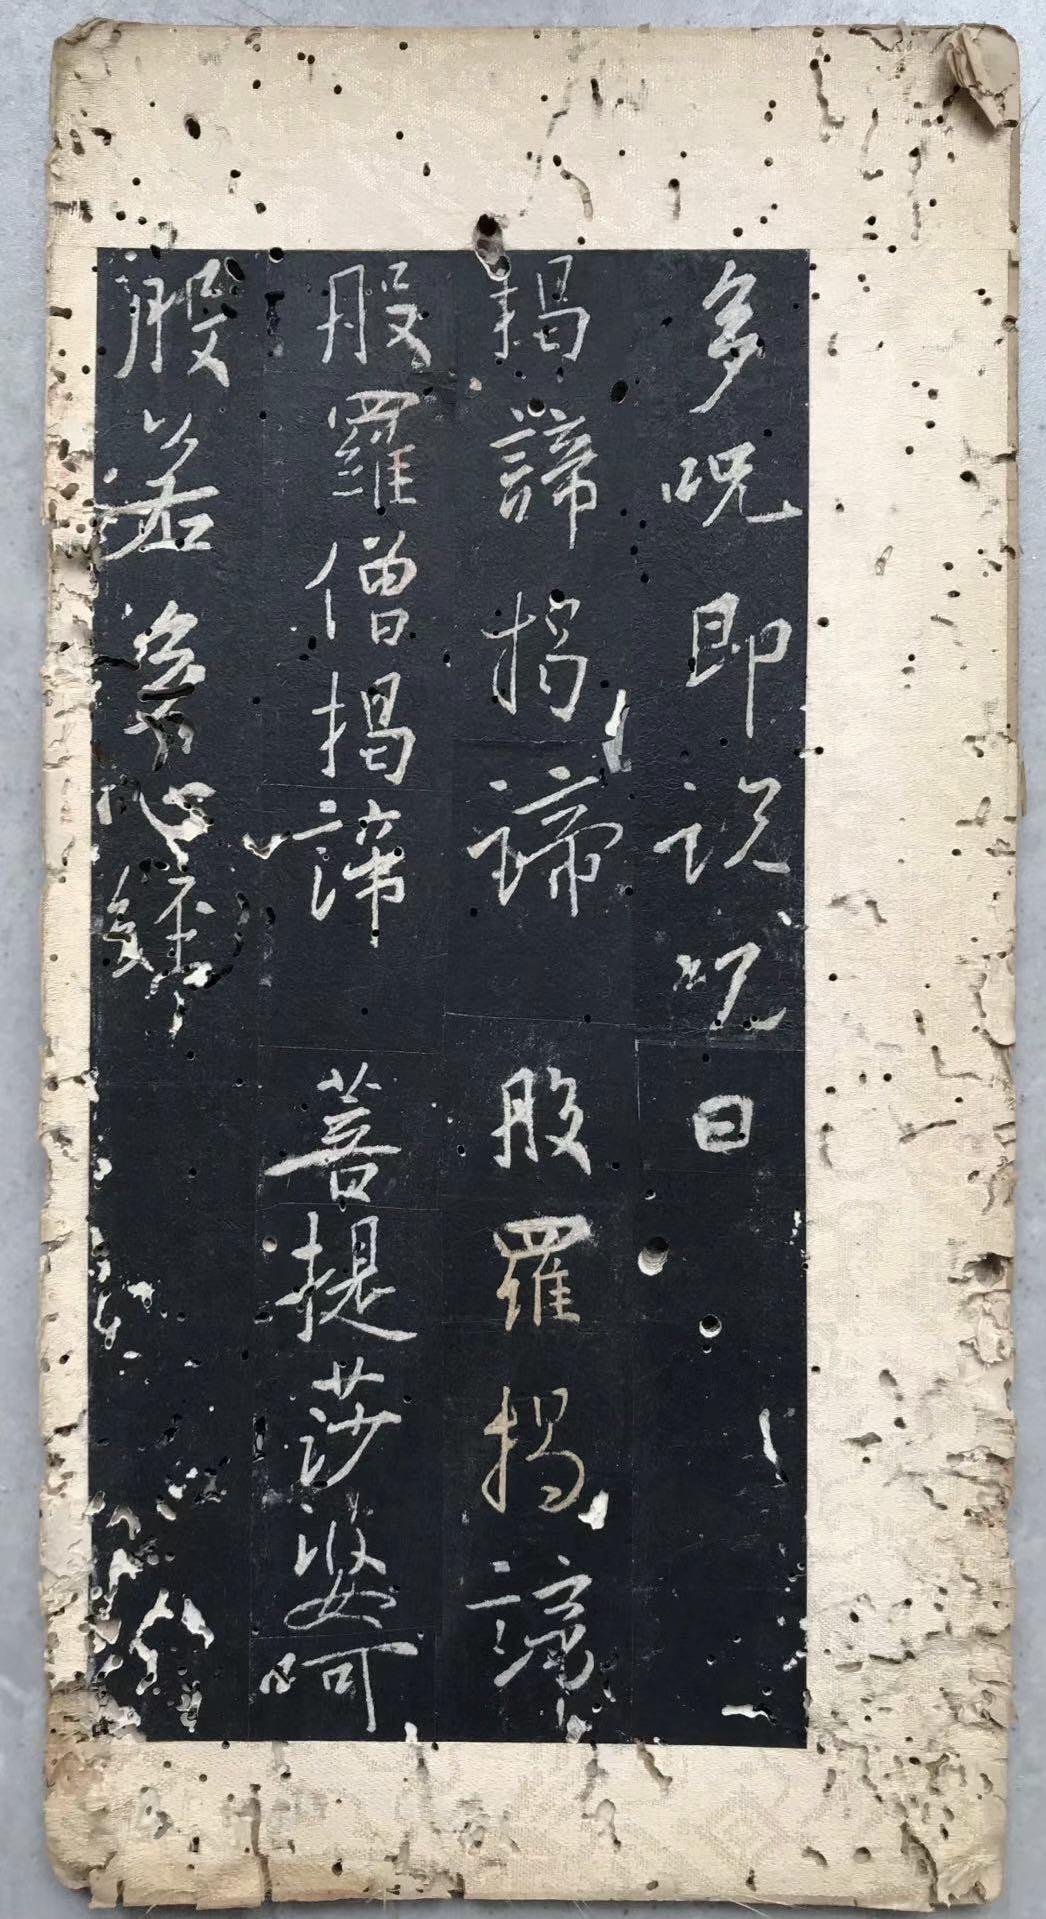 多呪即說呪曰
揭諦揭諦 般羅揭諦
般羅僧揭諦 菩提莎婆呵
般若多心經